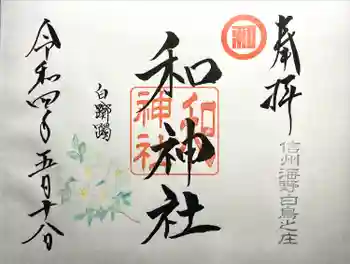 奉拝
信州海野白鳥之庄
和
和神社
和神社
白躑躅
令和四年五月十八日